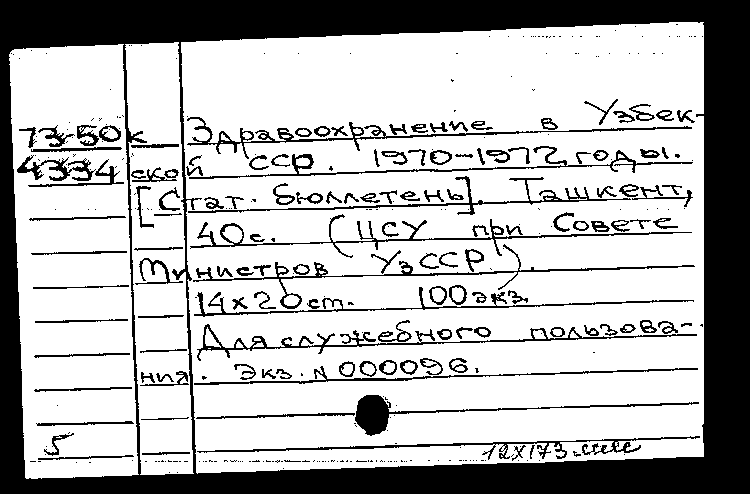 73-50к Здравоохранение в Узбек-
4334 ской ССР. 1970-1972 годы.
[Стат. бюллетень]. Ташкент,
40с. (ЦСУ при Совете
Министров УзССР).
14х20см. 100экз.
Для служебного пользова-
ния. Экз. N 000096.
5